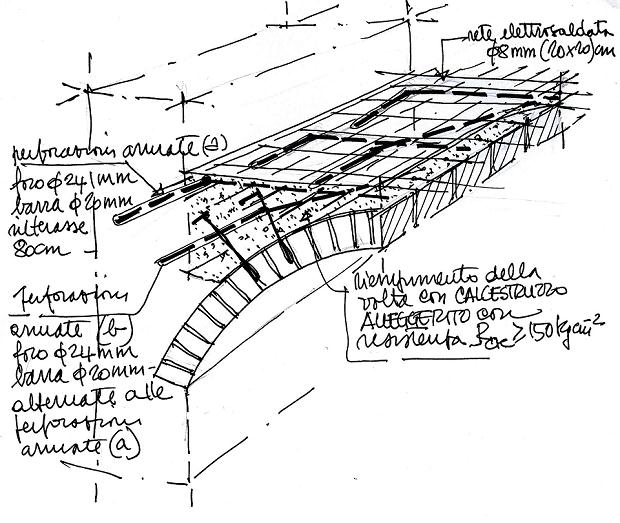 rete elettrosaldata
φ8mm (20x20)cm
perforazioni armate (a)
foro φ24mm
barra φ20mm
interasse
80cm
perforazioni
armate (b)
foro φ24mm
barra φ20mm
alternate alle
perforazioni
armate (a)
riempimento della
volta con CALCESTRUZZO
ALLEGGERITO con
resistenza ≥150kg/cm²